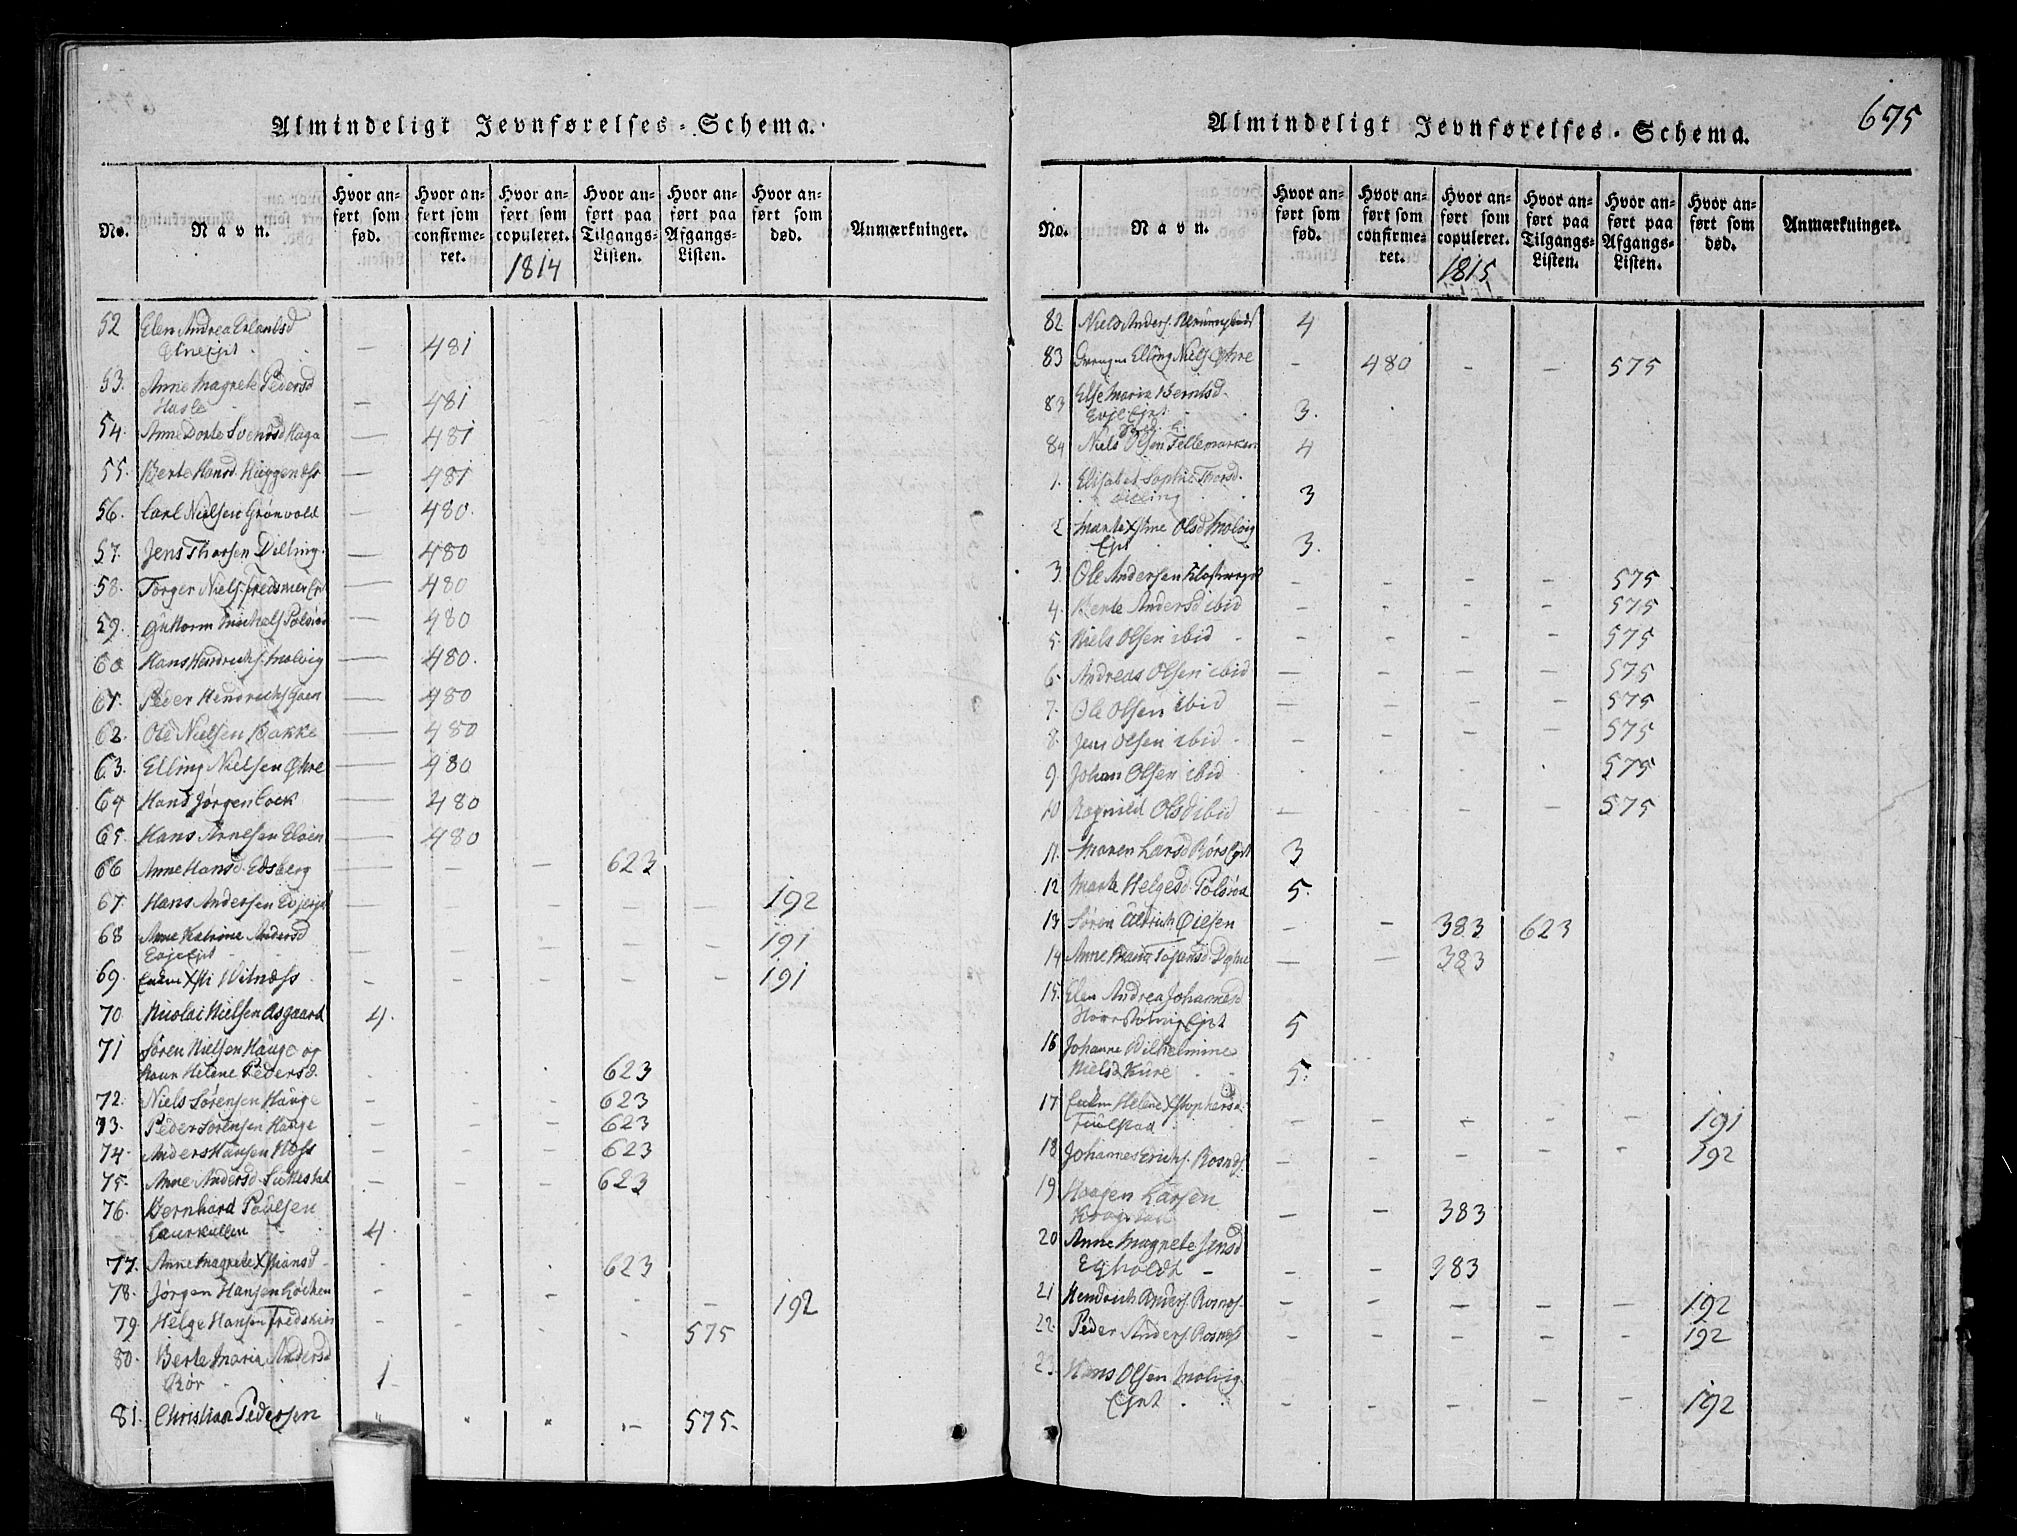 Almindeligt Jevnførelses-Schema.
No. Navn. Hvor anført som fød. Hvor anført som confirmeret. Hvor anført som copuleret. Hvor anført paa Tilgangs-Listen. Hvor anført paa Afgangs-Listen. Hvor anført som død. Anmærkninger.
1814
52 Elen Andrea
— 481
53. Anne Magrete Pedersd
Hasle — 481
54. Anne Dorte Svendsd Haga — 481
55. Berte Hansd — 481
56. Carl Nielsen Grønvold — 480.
57. Jens Thorsen Dilling. — 480
58. Torger Niels. — 480
59. Guttorm — 480
60 Hans Hendrichs. Molvig — 480.
61. Peder Hendrichs — 480
62. Ole Nielsen Bakke — 480
63. Elling Nielsen Øhre — 480
64 Hans Jørgen Cock — 480
65. Hans Arnesen — 480
66 Anne Hansd. Edsberg — — — 623
67. Hans Andersen — — — — — 192
68 Anne Katrine Andersd
Evje Ejet — — — — — 191
69. Witnæss — — — — — 191
70 Nicolai Nielsen Asgaard 4.
71 Søren Nielsen Hauge og
Helene Pedersd. - - - 623
72. Niels Sørensen Hauge - - - 623
73. Peder Sørensen Hauge — — — 623
74. Anders Hansen Næss — — — 623
75. Anne Andersd — — — 623
76. Bernhard Poulsen
4.
77. Anne Magrete Xstiansd - - - 623
78. Jørgen Hansen — — — — — 192
79. Helge Hansen — — — — 575
80. Berte Maria Andersd
Rør 1
81. Christian Pedersen " " " — 575.
Almindeligt Jevnførelses-Schema.
675
No. Navn. Hvor anført som fød. Hvor anført som confirmeret. Hvor anført som copuleret. Hvor anført paa Tilgangs-Listen. Hvor anført paa Afgangs-Listen. Hvor anført som død. Anmærkninger.
1815
82 Niels Anders. 4
83 Elling Niels. Øhre — 480 — — 575
83 Else Maria Berntsd.
Evje Ejet 3.
84 Niels Olsen Tellemarken 4
1. Elisabet Sophie Thorsd.
Dilling 3
2 Olsd Molvig
Ejet 3.
3. Ole Andersen — — — — 575
4. Berte Andersd ibid — — — — 575
5. Niels Olsen ibid — — — — 575
6. Andreas Olsen ibid — — — — 575
7. Ole Olsen ibid — — — — 575
8. Jens Olsen ibid — — — — 575
9. Johan Olsen ibid - - - - 575
10 Ragnild Olsd ibid — — — — 575
11. Maren Larsd Rørs Ejet 3
12. Marte Helgesd. 5.
13 Søren Olsen — — 383 623
14 Anne Maria — — 383
15. Elen Andrea Johannesd
Ejet 5
16 Johanne Wilhelmine
Nielsd Kure 5.
17. Helene Xstophersd.
— — — — — 191
18 Johannes Erichs. Rosnæs. — — — — — 192
19 Haagen Larsen
Krogstad — — 383
20 Anne Magrete Jensd
Egholdt — — 383
21 Hendrich Anders. Rosnæs. — — — — — 192
22. Peder Anders. Rosnæss — — — — — 192
23. Hans Olsen Molvig
Ejet — — — — — 192